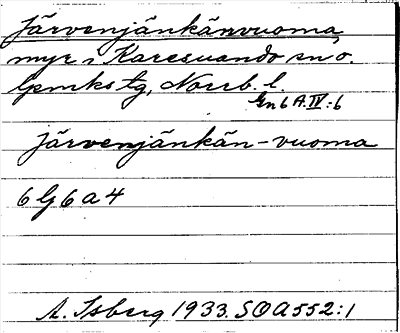 Järvenjänkänvuoma,
myr i Karesuando sn o.
lpmks tg, Norrb. l.
Gn 6 A.IV:6
järvenjänkän-vuoma
6 G 6 a 4
A. Isberg 1933. SOA 552:1